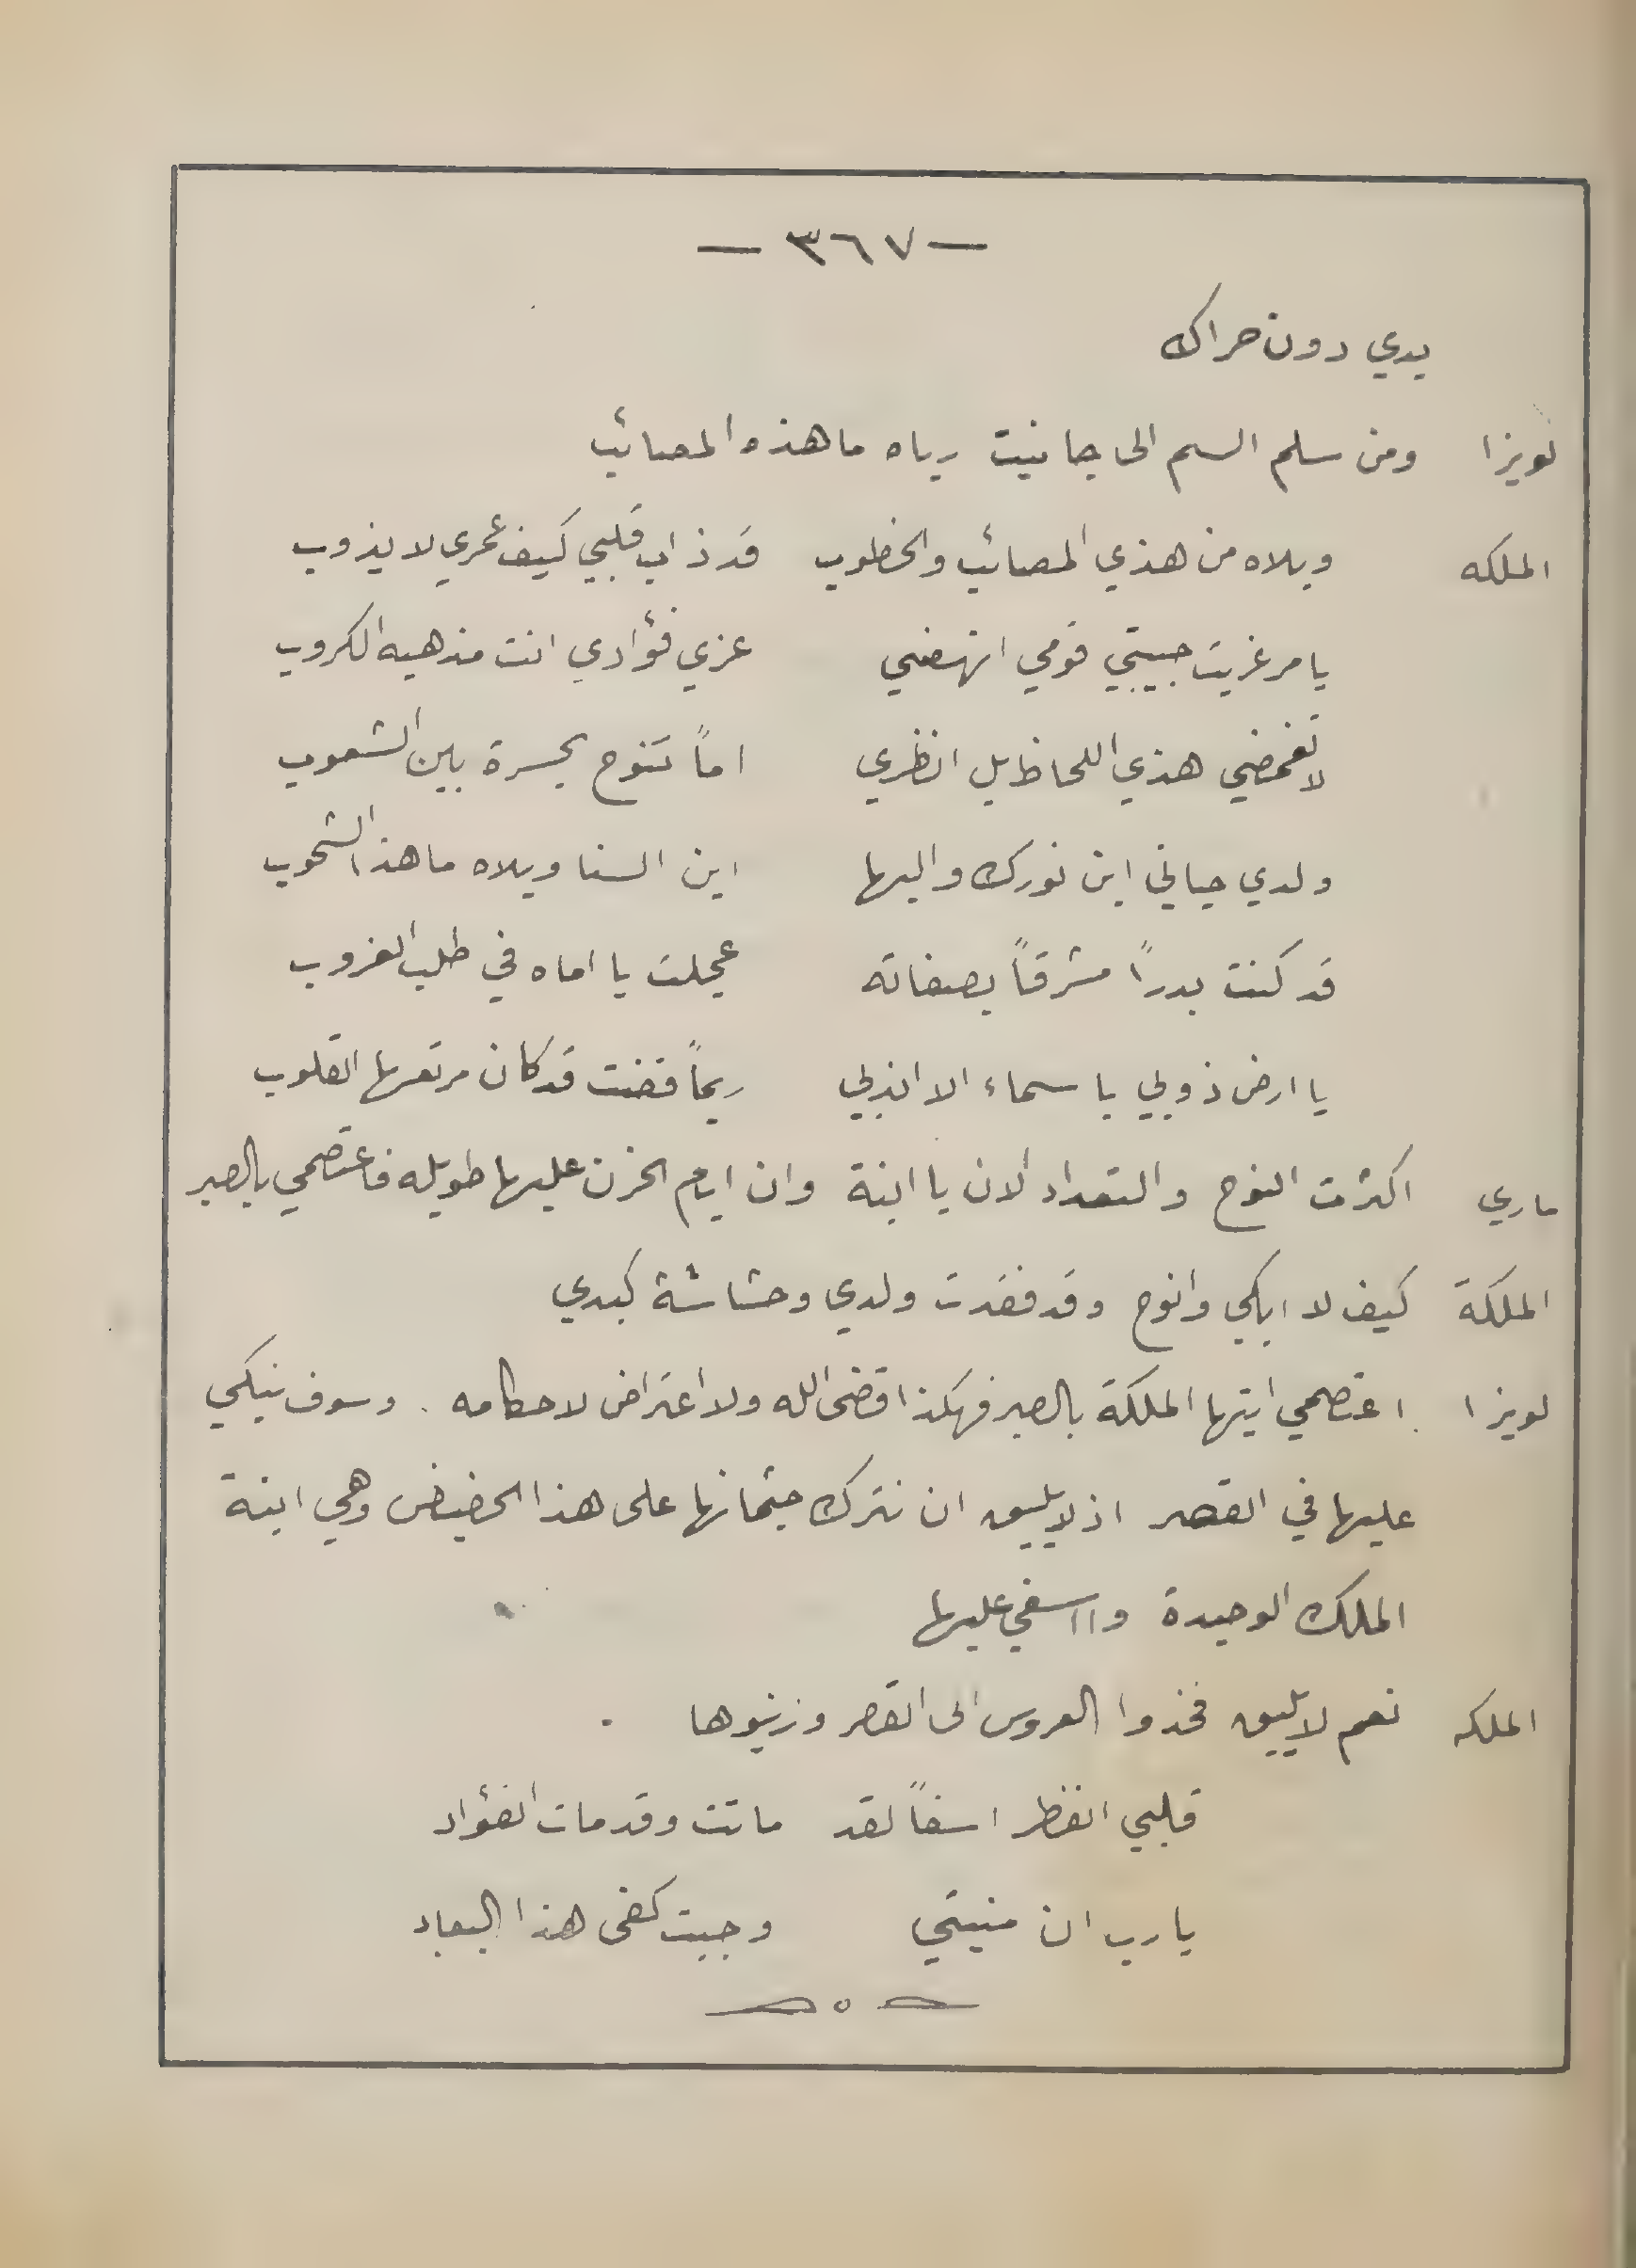 — ٣٦٧ —
يدي دون حراك
لويزا ومن سلم السم الى جانيت رباه ما هذه المصائب
الملكه ويلاه من هذي المصائب والخطوب قد ذاب قلبي كيف عمري لا يذوب
يا مرغريت حبيبتي قومي انهضي عزي فؤادي انت مذهبه الكروب
لا تغمضي هذي اللحاظ بل انظري اماً تنوح بحسرة بين الشعوب
ولدي حياتي اين نورك والبها اين السنا ويلاه ما هذا الشحوب
قد كنت بدراً مشرقاً بصفاته عجلت يا اماه في طلب الغروب
يا ارض ذوبي يا سماء الا انزلي ريماً قضت قد كان مرتعها القلوب
ماري اكثرت النوح والتعداد الان يا ابنة وان ايام الحزن عليها طويله فاعتصمي بالصبر
الملكة كيف لا ابكي وانوح وقد فقدت ولدي وحشاشة كبدي
لويزا اعتصمي ايتها الملكة بالصبر فهكذا قضى الله ولا اعتراض لاحكامه . وسوف نبكي
عليها في القصر اذ لا يليق ان نترك جثمانها على هذا الحضيض وهي ابنة
الملك الوحيدة وااسفي عليها
الملكه نعم لا يليق فخذوا العروس الى القصر وزينوها .
قلبي انفطر اسفاً لقد ماتت وقد مات الفؤاد
يا رب ان منيتي وجبت كفى هذا البعاد